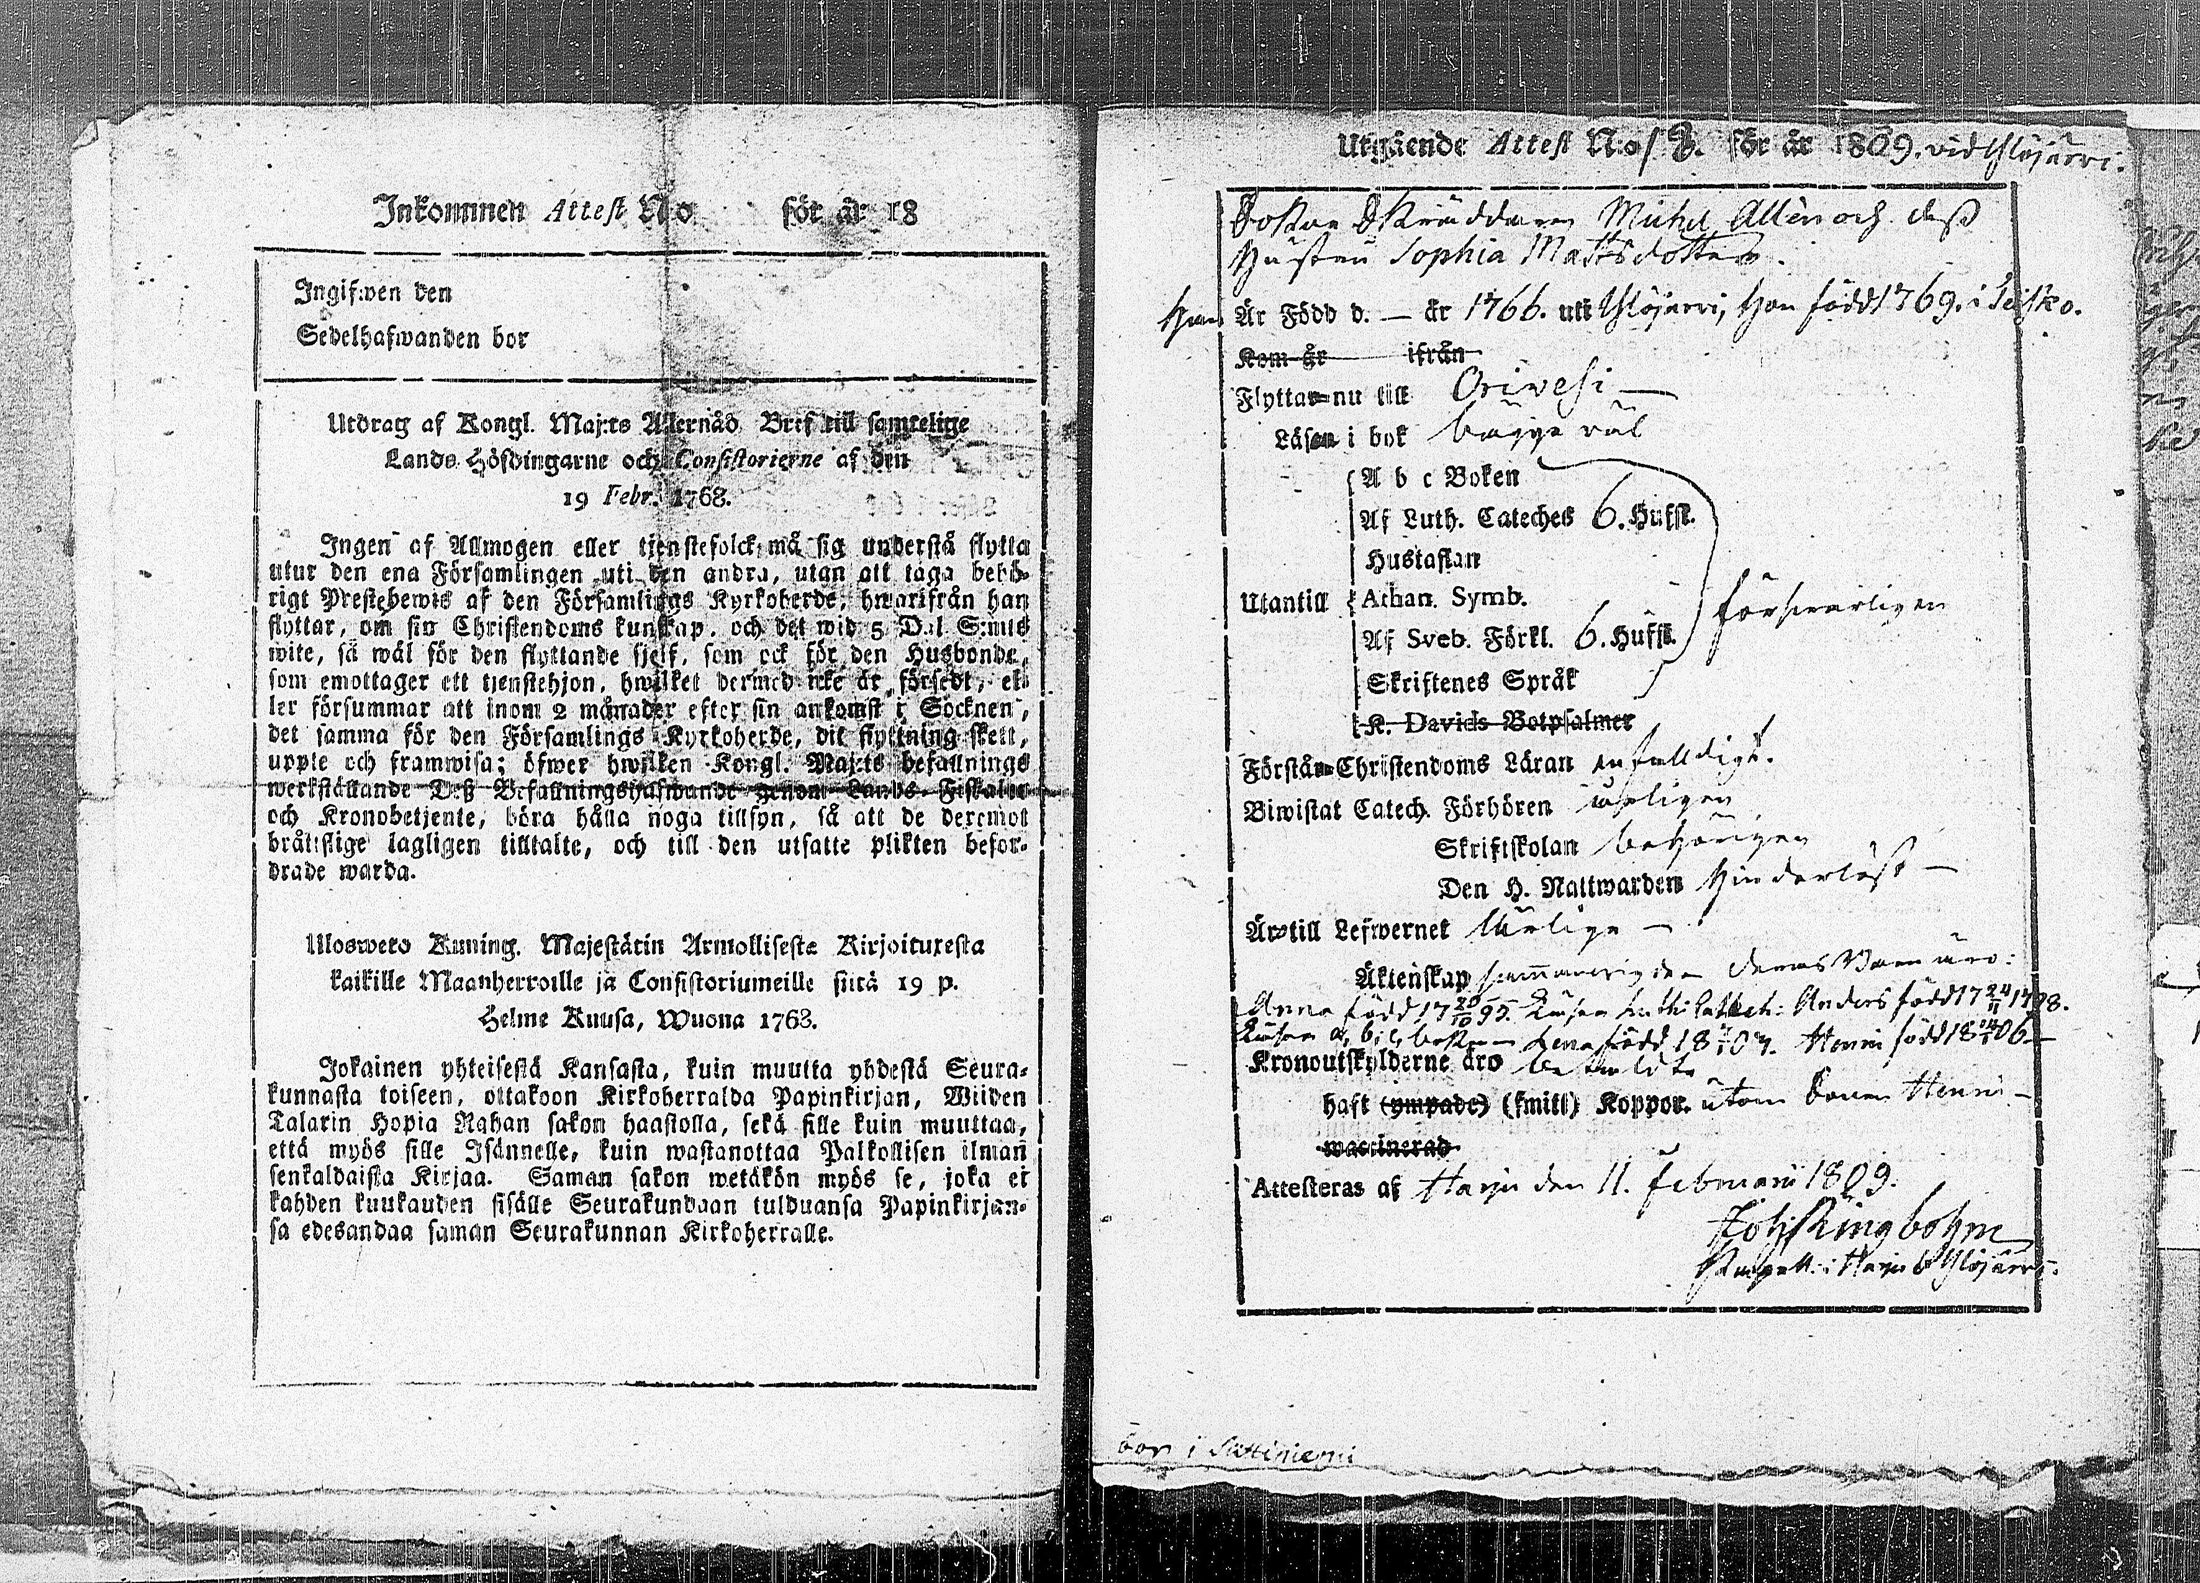 Inkommen Attest No för år 18
Ingifwen den
Sedelhafwanden bor
Utdrag af Kongl. Maj:ts Allernåd. Bref till samtelige
Lands Höfdingarne och Consistorierne af den
19 Febr. 1768.
Ingen af Allmogen eller tjenstefolck må sig understå flytta
utur den ena Församlingen uti den andra, utan att taga behö-
rigt Prestebewis af den Församlings Kyrkoherde, hwarifrån han
flyttar, om sin Christendoms kunskap, och det wid 5 Dal. S:mts
wite, så wäl för den flyttande sjelf, som ock för den Husbonde,
som emottager ett tjenstehjon, hwilket dermed icke är försedt, el-
ler försummar att inom 2 månader efter sin ankomst i Socknen,
det samma för den Församlings Kyrkoherde, dit flyttning skett,
uppte och framwisa; öfwer hwilken Kongl. Maj:ts befallnings
werkställande Deß Befallningshafwande genom Lands-Fiskaler
och Kronobetjente, böra hålla noga tillsyn, så att de deremot
bråttslige lagligen tilltalte, och till den utsatte plikten befor-
drade warda.
Uloswето Kuning. Majestätin Armollisesta Kirjoituxesta
kaikille Maanherroille ja Consistoriumeille siitä 19 p.
Helme Kuusa, Wuona 1768.
Jokainen yhteisestä Kansasta, kuin muutta yhdestä Seura-
kunnasta toiseen, ottakoon Kirkoherralda Papinkirjan, Wiiden
Talarin Hopia Rahan sakon haastolla, sekä sille kuin muuttaa,
että myös sille Isännelle, kuin wastanottaa Palkollisen ilman
senkaldaista Kirjaa. Saman sakon wetäkön myös se, joka ei
kahden kuukauden sisälle Seurakundaan tulduansa Papinkirjan-
sa edesandaa saman Seurakunnan Kirkoherralle.
Utgående Attest N:o 18. för år 1809. vid Ylöjärvi.
Sokne Skräddaren Michel Allén och deß
Hustru Sophia Mattsdotter.
Han Är Född d. — år 1766. uti Ylöjärvi, Hon född 1769. i Teisko.
Kom år ifrån
Flyttar nu till Orivesi —
Läsen i bok bägge väl
A b c Boken
Af Luth. Cateches 6. Hufst.
Hustaflan
Utantill Athan. Symb. försvarligen
Af Sveb. Förkl. 6. Hufst.
Skriftenes Språk
K. Davids Botpsalmer
Förstå Christendoms Läran enfaldigt.
Biwistat Catech. Förhören årligen
Skriftskolan behörigen
Den H. Nattwarden Hinderlöst —
Äro till Lefwernet Ärlige —
Äktenskap deras Barn äro:
Anna född 17 20/10 95. Anders född 17 24/11 1798.
a, b, c, boken Lena född Henric född
Kronoutskylderne äro betalde
haft (ympade) (smitt) Koppor. utom Sonen Henric —
waccinerad
Attesteras af Harju den 11. Februarii 1809.
Joh. Ringbohm
Kapell: i Harju & Ylöjärvi.
bor i